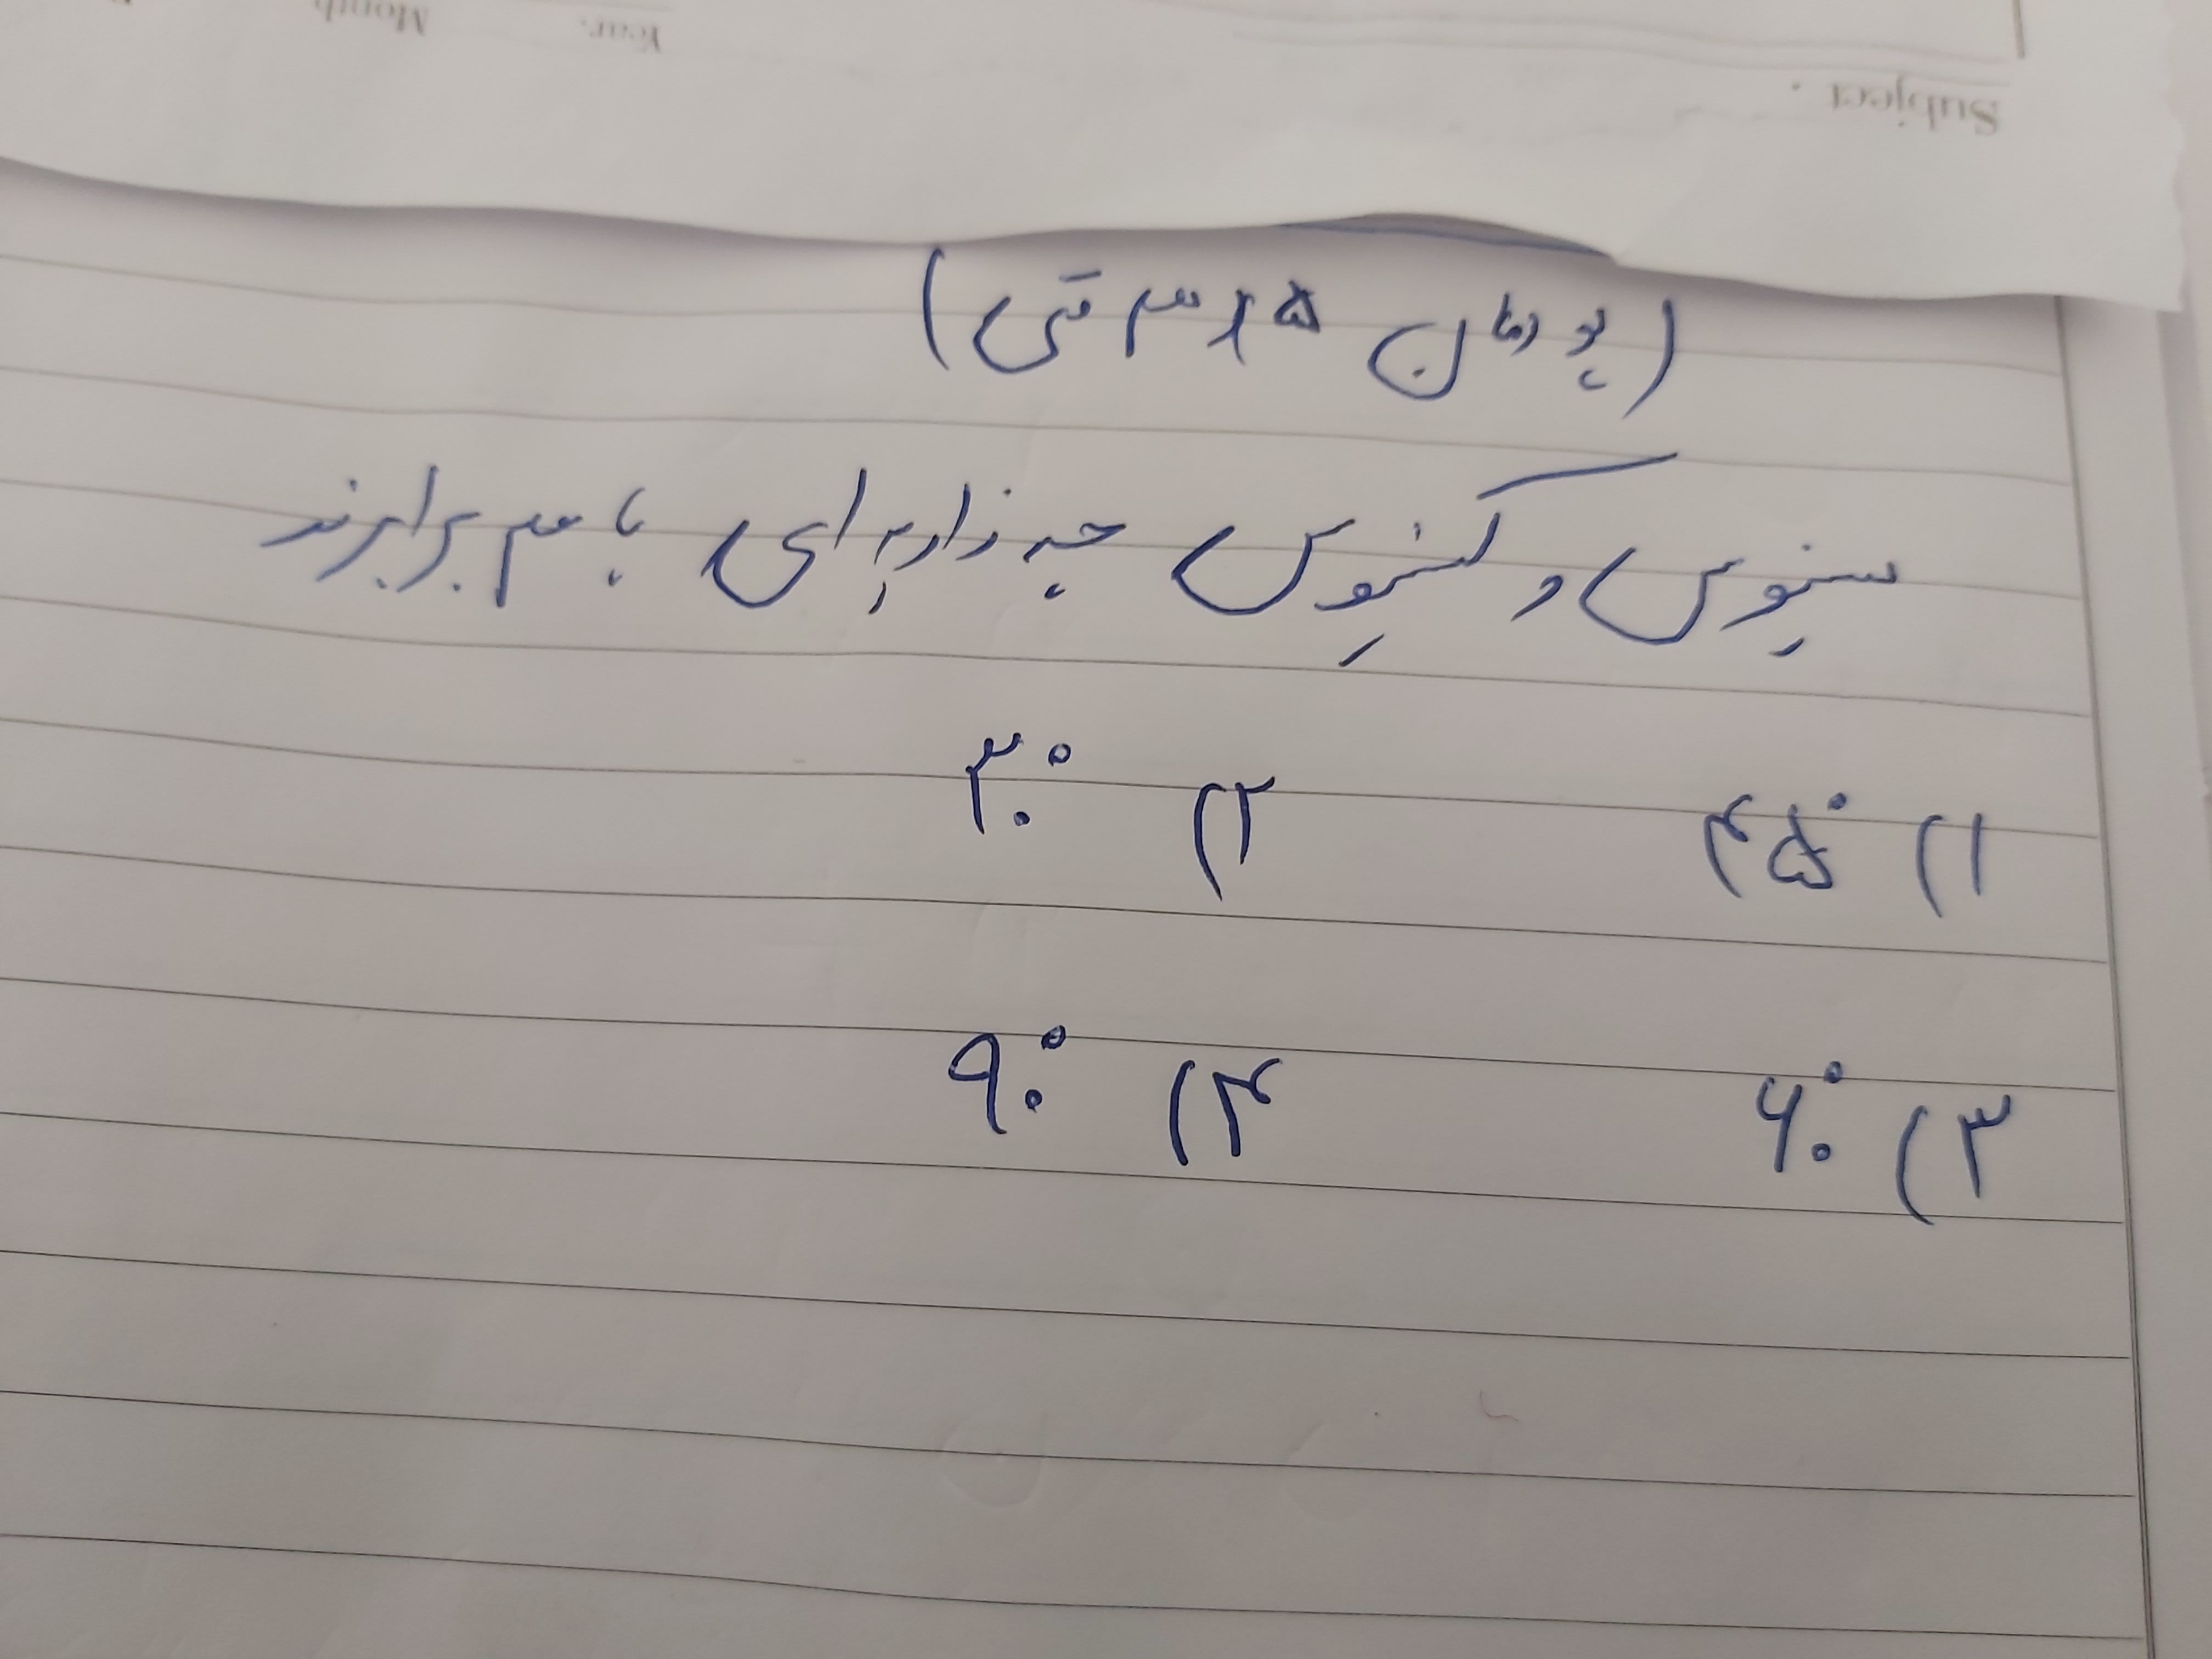 Subject .
Year. Month
(پودمان ۵ ریاضی فنی)
سینوس و کسینوس چه زاویه ای با هم برابرند
۱) ۴۵° ۲) ۳۰°
۳) ۶۰° ۴) ۹۰°